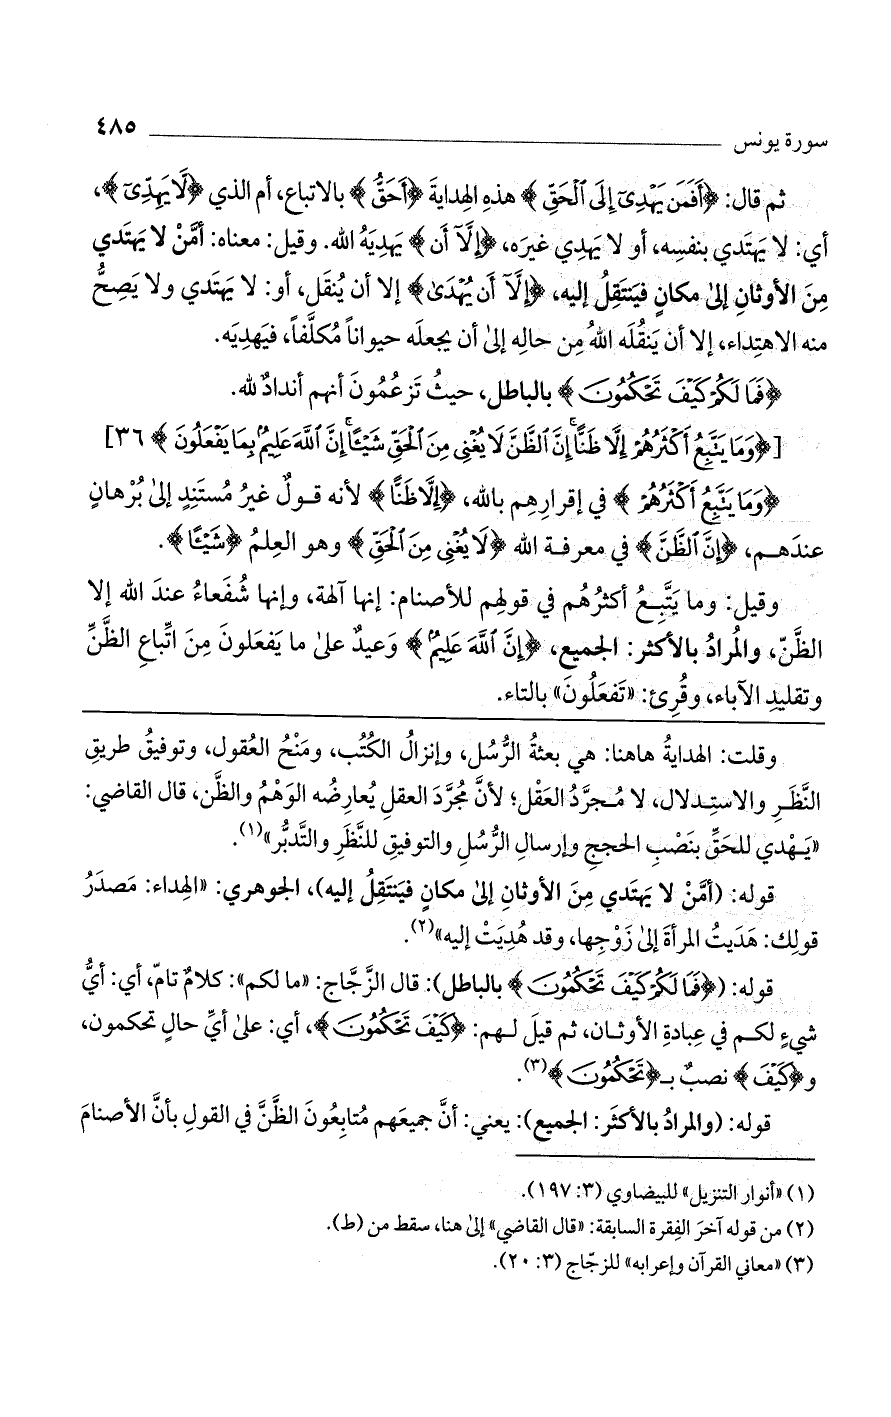 سورة يونس ـــــــ ٤٨٥
ثم قال: ﴿أَفَمَن يَهْدِىٓ إِلَى ٱلْحَقِّ﴾ هذهِ الهِدايةَ ﴿أَحَقُّ﴾ بالاتباع، أم الذي ﴿لَّا يَهِدِّىٓ﴾،
أي: لا يَهتَدي بنفسِه، أو لا يَهدِي غيرَه، ﴿إِلَّآ أَن﴾ يَهدِيَهُ الله. وقيل: معناه: أمَّنْ لا يَهتَدي
مِنَ الأوثانِ إلىٰ مكانٍ فيَنتَقِلُ إليه، ﴿إِلَّآ أَن يُهْدَىٰ﴾ إلا أن يُنقَل، أو: لا يَهتَدي ولا يَصِحُّ
منه الاهتِداء، إلا أن يَنقُلَه اللهُ مِن حالِه إلىٰ أن يجعلَه حيواناً مُكلَّفاً، فيَهدِيَه.
﴿فَمَا لَكُمْ كَيْفَ تَحْكُمُونَ﴾ بالباطل، حيثُ تَزعُمُونَ أنهم أندادٌ لله.
[﴿وَمَا يَتَّبِعُ أَكْثَرُهُمْ إِلَّا ظَنًّا ۚ إِنَّ ٱلظَّنَّ لَا يُغْنِى مِنَ ٱلْحَقِّ شَيْـًٔا ۚ إِنَّ ٱللَّهَ عَلِيمٌۢ بِمَا يَفْعَلُونَ﴾ ٣٦]
﴿وَمَا يَتَّبِعُ أَكْثَرُهُمْ﴾ في إقرارِهِم بالله، ﴿إِلَّا ظَنًّا﴾ لأنه قـولٌ غيرُ مُستَنِدٍ إلىٰ بُرْهانٍ
عندَهـم، ﴿إِنَّ ٱلظَّنَّ﴾ في معرفـة الله ﴿لَا يُغْنِى مِنَ ٱلْحَقِّ﴾ وهو العِلمُ ﴿شَيْـًٔا﴾.
وقيل: وما يَتَّبِـعُ أكثرُهُم في قولِهِم للأصنام: إنها آلهة، وإنها شُفَعاءُ عندَ الله إلا
الظَّنّ، والمُرادُ بالأكثر: الجميع، ﴿إِنَّ ٱللَّهَ عَلِيمٌۢ﴾ وَعيدٌ علىٰ ما يَفعَلونَ مِنَ اتِّباعِ الظَّنِّ
وتقليدِ الآباء، وقُرِئ: «تَفعَلُونَ» بالتاء.
وقلت: الهدايةُ هاهنا: هي بعثةُ الرُّسُل، وإنزالُ الكُتُب، ومَنْحُ العُقول، وتوفيقُ طريقِ
النَّظَـرِ والاستِـدلال، لا مُـجرَّدُ العَقْل؛ لأنَّ مُجرَّدَ العقلِ يُعارِضُه الوَهْمُ والظَّن، قال القاضي:
«يَـهْدي للحَقِّ بنَصْبِ الحججِ وإرسالِ الرُّسُلِ والتوفيقِ للنَّظَرِ والتَّدبُّر»(١).
قوله: (أمَّنْ لا يَهتَدي مِنَ الأوثانِ إلىٰ مكانٍ فيَنتَقِلُ إليه)، الجوهري: «الهِداء: مَصدَرُ
قولِك: هَدَيتُ المرأةَ إلىٰ زَوْجِها، وقد هُدِيَتْ إليه»(٢).
قوله: (﴿فَمَا لَكُمْ كَيْفَ تَحْكُمُونَ﴾ بالباطل): قال الزَّجَّاج: «ما لكم»: كلامٌ تامّ، أي: أيُّ
شيءٍ لكـم في عِبادةِ الأوثـان، ثم قيلَ لـهم: ﴿كَيْفَ تَحْكُمُونَ﴾، أي: علىٰ أيِّ حالٍ تحكمون،
و﴿كَيْفَ﴾ نصبٌ بـ﴿تَحْكُمُونَ﴾(٣).
قوله: (والمرادُ بالأكثَر: الجميع): يعني: أنَّ جميعَهم مُتابِعُونَ الظَّنَّ في القولِ بأنَّ الأصنامَ
(١) «أنوار التنزيل» للبيضاوي (٣: ١٩٧).
(٢) من قوله آخرَ الفِقرة السابقة: «قال القاضي» إلىٰ هنا، سقط من (ط).
(٣) «معاني القرآن وإعرابه» للزجّاج (٣: ٢٠).